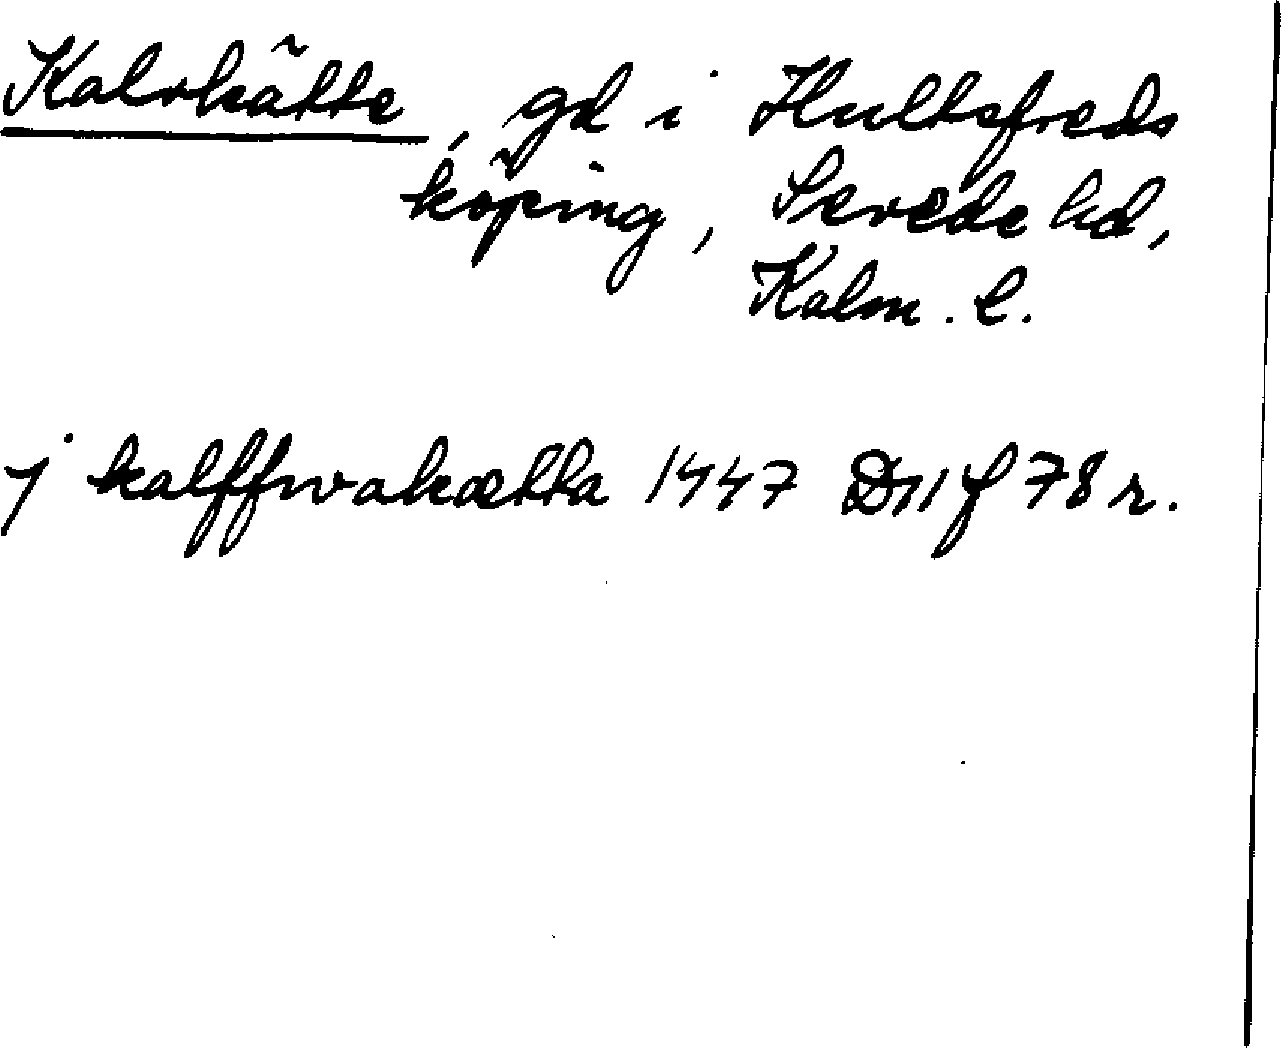 Kalvkätte, gd i Hultsfreds
köping, Sevede hd,
Kalm. l.
j kalffwakætta 1447 D 11 f 78 r.